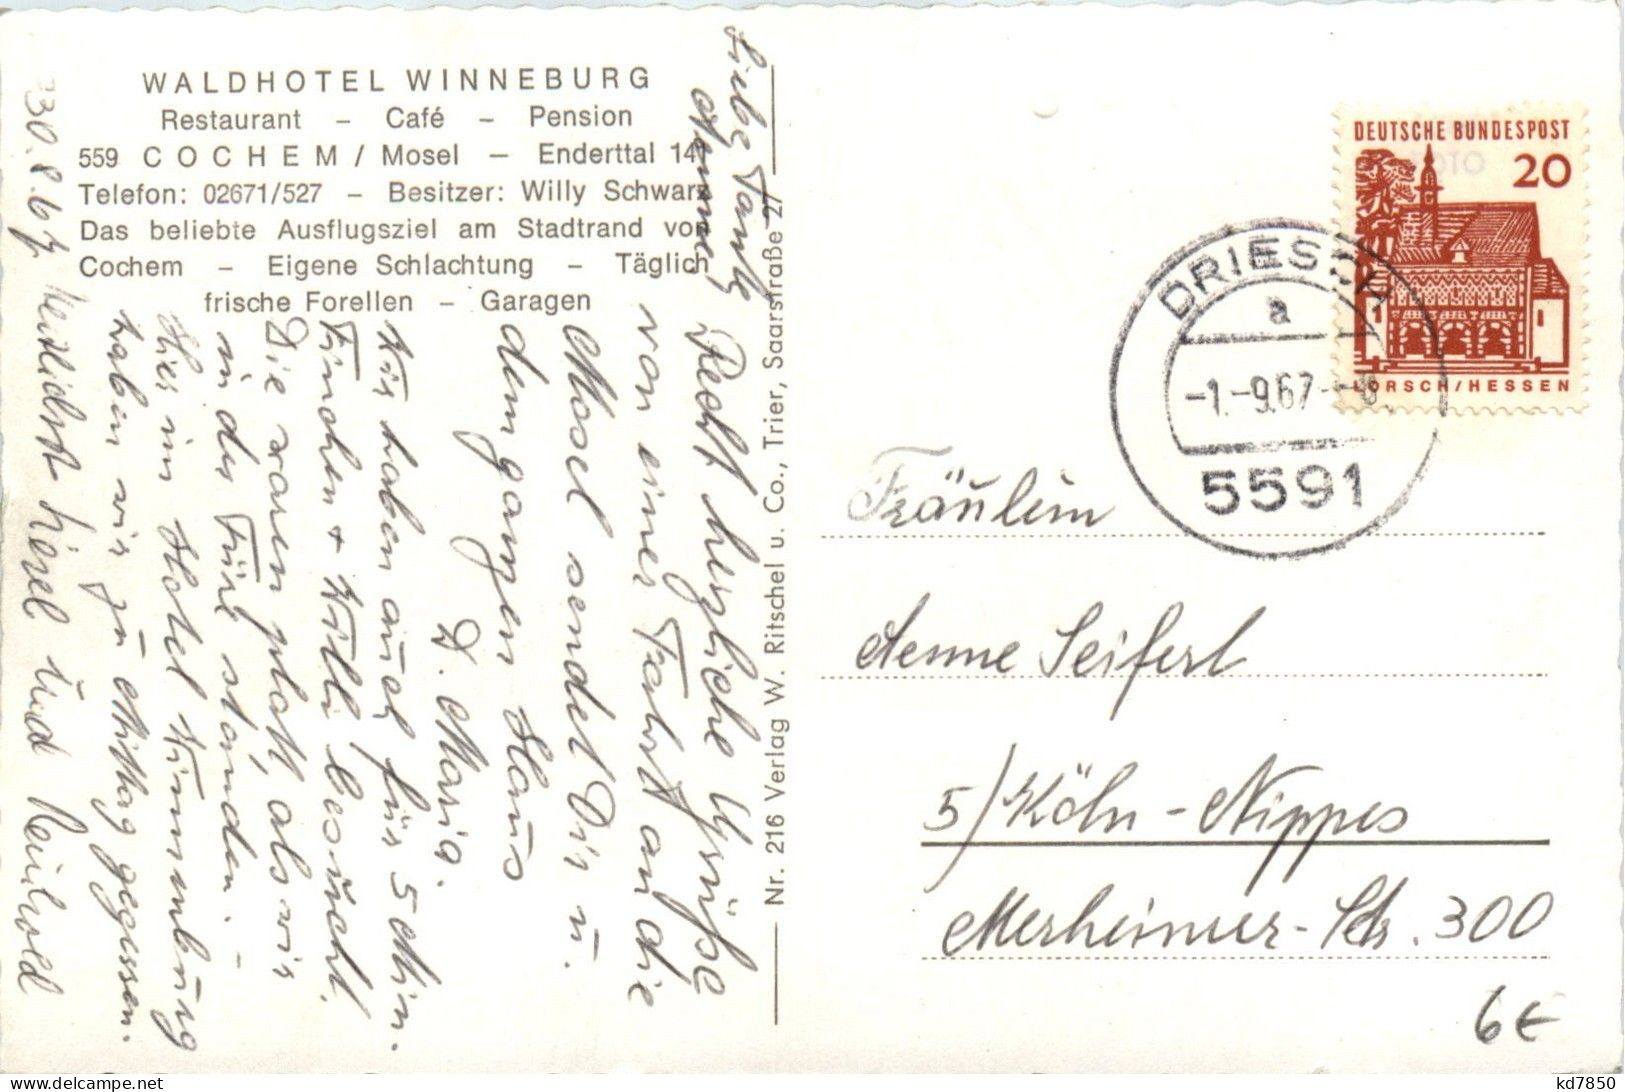 WALDHOTEL WINNEBURG
Restaurant – Café – Pension
559 COCHEM / Mosel – Enderttal 141
Telefon: 02671/527 – Besitzer: Willy Schwarz
Das beliebte Ausflugsziel am Stadtrand von
Cochem – Eigene Schlachtung – Täglich
frische Forellen – Garagen
30.8.67
Liebe Tante
Aenne,
Recht herzliche Grüße
von einer Fahrt an die
Mosel sendet Dir u.
dem ganzen Haus
D. Maria.
Wir haben auch für 5 Min.
Finchen + Willi besucht.
Die waren platt, als wir
in der Türe standen. –
Hier im Hotel Winneburg
haben wir zu Mittag gegessen.
Herzlichst und Reinhold
Nr. 216 Verlag W. Ritschel u. Co., Trier, Saarstraße 27
DEUTSCHE BUNDESPOST
20
LORSCH/HESSEN
DRIESCH
a
-1.-9.67
5591
Fräulein
Aenne Seifert
5/Köln-Nippes
Merheimer-Str. 300
6€
kd7850